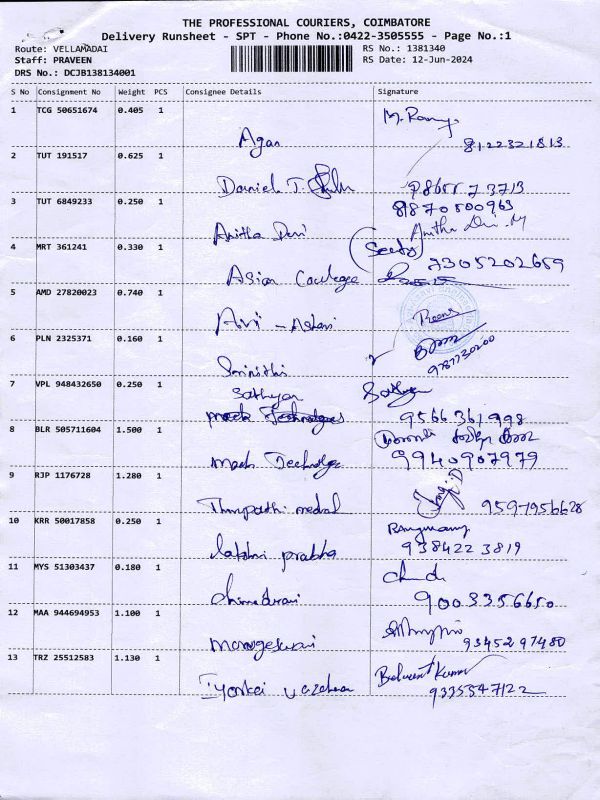 THE PROFESSIONAL COURIERS, COIMBATORE
Delivery Runsheet - SPT - Phone No.:0422-3505555 - Page No.:1
Route: VELLAMADAI RS No.: 1381340
Staff: PRAVEEN RS Date: 12-Jun-2024
DRS No.: DCJB138134001
S No Consignment No Weight PCS Consignee Details Signature
1 TCG 50651674 0.405 1
Agan 8122321813
2 TUT 191517 0.625 1
Daniel T.
3 TUT 6849233 0.250 1 8870500963
Anitha Devi Anitha Devi. M
4 MRT 361241 0.330 1
Asian College 7305202659
5 AMD 27820023 0.740 1
6 PLN 2325371 0.160 1
Srinithi 9787730200
7 VPL 948432650 0.250 1
Sathyan
9566361998
8 BLR 505711604 1.500 1
Mach Technologe 9940907979
9 RJP 1176728 1.280 1
medral 9597956628
10 KRR 50017858 0.250 1
Lakshmi prabha 9384223819
11 MYS 51303437 0.180 1
9003356650
12 MAA 944694953 1.100 1
9345297480
13 TRZ 25512583 1.130 1
Balwent Kumar
9335547122